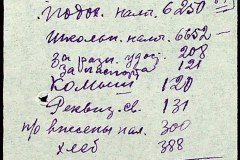 Подох. налог. 6250
Школьн. налт. 6652 —
За разн. удоб. 208
За паспорта 121
Комыш 120
Реквиз. св. 131
п/о внесены нал. 300
хлеб 388